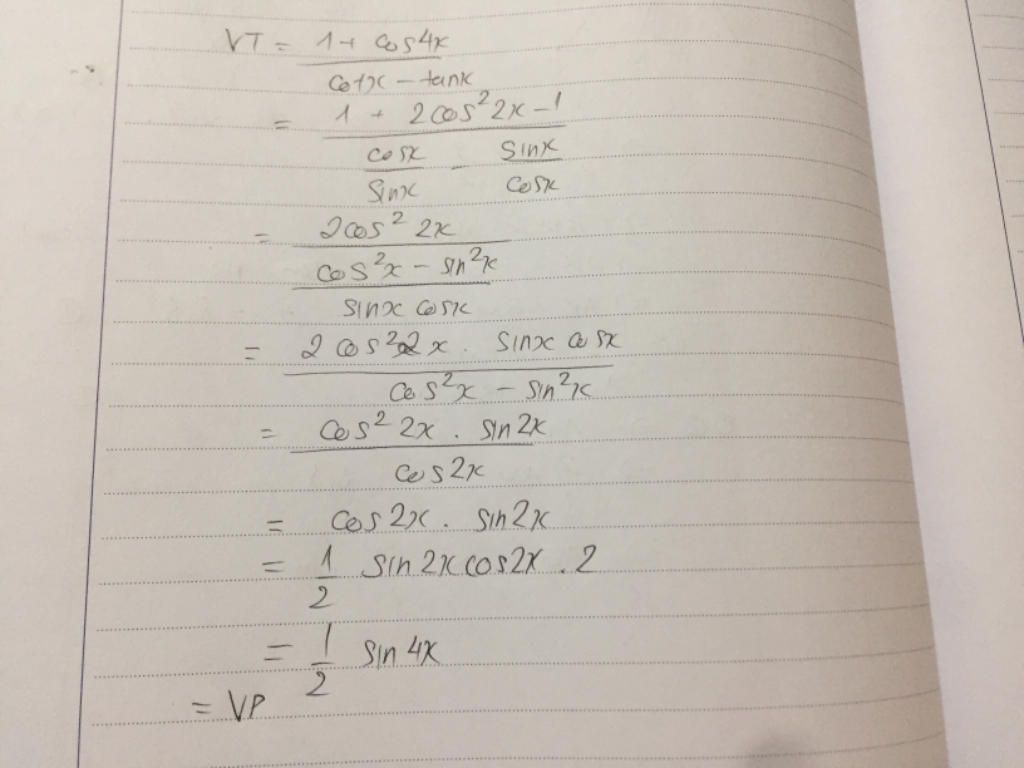 VT = 1 + cos4x
cotx - tanx
= 1 + 2cos²2x - 1
cosx - sinx
sinx cosx
= 2cos² 2x
cos²x - sin²x
sinx cosx
= 2 cos²2x . sinx cosx
cos²x - sin²x
= cos² 2x . sin2x
cos2x
= cos2x . sin2x
= 1 sin2xcos2x . 2
2
= 1 sin4x
2
= VP